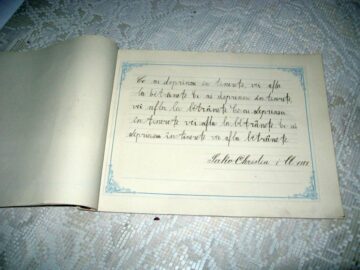 Ce ai deprins in tinerețe, vei afla
la bătrânețe Ce ai deprins in tinerețe,
vei afla la bătrânețe Ce ai deprins
in tinerețe vei afla la bătrânețe Ce ai
deprins in tinerețe vei afla bătrânețe